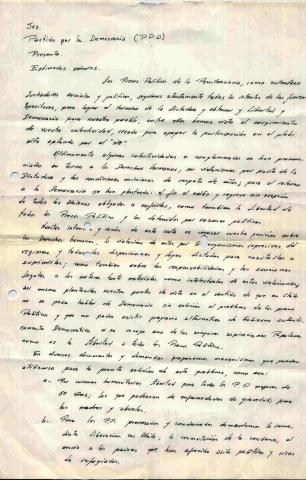 Srs
Partido por la Democracia (P.P.D)
Presente.
Estimados señores.
Los Presos Políticos de la Penitenciaría, como auténticos
luchadores sociales y políticos, seguimos atentamente todos los intentos de las fuerzas
opositoras, para lograr el término de la Dictadura y obtener la Libertad y
Democracia para nuestro pueblo, entre ellos hemos visto el surgimiento
de vuestra colectividad, creada para apoyar la participación en el plebi
cito optando por el "NO"
Ultimamente algunas colectividades o conglomerados se han pronun
ciado en torno a los Derechos Humanos, su violación por parte de la
Dictadura y las condiciones mínimas de respeto de éstos, para el retorno
a la Democracia se han planteado: el fin al exilio y regreso sin excepción
de todos los chilenos obligados a sufrirlo, como también la libertad de
todos los Presos Políticos y los detenidos por razones políticas.
Nuestra intención y razón de esta carta es conocer vuestra posición sobre
los Derechos Humanos, la violación de estos por los organismos represivos del
régimen y todas las disposiciones y leyes dictadas para
como también sobre las responsabilidades y las sanciones
legales a los autores tanto materiales como intelectuales de estas violaciones,
así mismo plantearles nuestro punto de vista en el sentido de que en Chile
no se podrá hablar de Democracia sin solución al problema de los presos
Políticos y que no podrá existir programa alternativo de Gobierno auténti
camente Democrático si no recoge una de las mayores aspiraciones Populares
como es la Libertad a todos los Presos Políticos.
En diversos documentos y demandas proponemos mecanismos que pueden
utilizarse para la pronta solución de este problema, como son:
a. Por razones humanitarias libertad para todos los P.P mayores de
50 años; los que padezcan de enfermedades de gravedad, para
las madres y abuelos.
b. Para los P.P. procesados y condenados demandamos la inme
diata liberación en Chile, la conmutación de la condena, el
envío a los países que han ofrecido asilo político y visas
de refugiados.